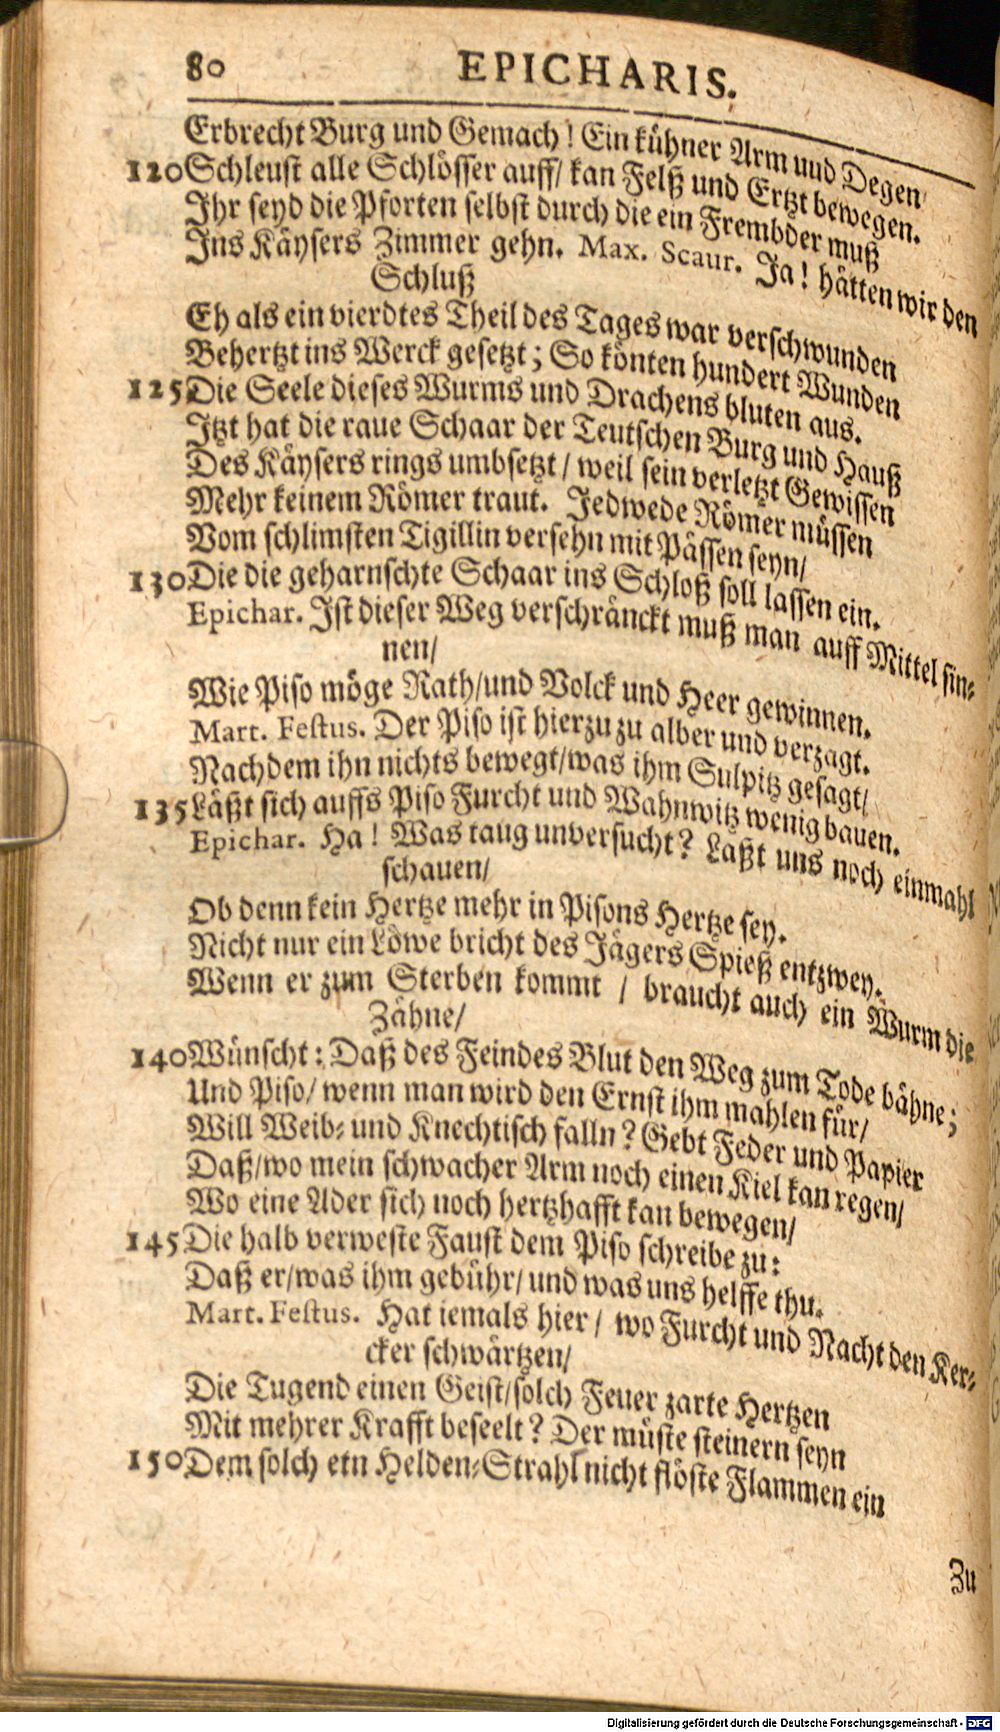 80 EPICHARIS.
Erbrecht Burg und Gemach! Ein kühner Arm uud Degen/
120 Schleust alle Schlösser auff/ kan Felß und Ertzt bewegen.
Ihr seyd die Pforten selbst durch die ein Frembder muß
Ins Käysers Zimmer gehn. Max. Scaur. Ja! hätten wir den
Schluß
Eh als ein vierdtes Theil des Tages war verschwunden
Behertzt ins Werck gesetzt; So könten hundert Wunden
125 Die Seele dieses Wurms und Drachens bluten aus.
Itzt hat die raue Schaar der Teutschen Burg und Hauß
Des Käysers rings umbsetzt/ weil sein verletzt Gewissen
Mehr keinem Römer traut. Jedwede Römer müssen
Vom schlimsten Tigillin versehn mit Pässen seyn/
130 Die die geharnschte Schaar ins Schloß soll lassen ein.
Epichar. Ist dieser Weg verschränckt muß man auff Mittel sin-
nen/
Wie Piso möge Rath/ und Volck und Heer gewinnen.
Mart. Festus. Der Piso ist hierzu zu alber und verzagt.
Nachdem ihn nichts bewegt/ was ihm Sulpitz gesagt/
135 Läßt sich auffs Piso Furcht und Wahnwitz wenig bauen.
Epichar. Ha! Was taug unversucht? Laßt uns noch einmahl
schauen/
Ob denn kein Hertze mehr in Pisons Hertze sey.
Nicht nur ein Löwe bricht des Jägers Spieß entzwey.
Wenn er zum Sterben kommt / braucht auch ein Wurm die
Zähne/
140 Wünscht: Daß des Feindes Blut den Weg zum Tode bähne;
Und Piso/ wenn man wird den Ernst ihm mahlen für/
Will Weib- und Knechtisch falln? Gebt Feder und Papier
Daß/ wo mein schwacher Arm noch einen Kiel kan regen/
Wo eine Ader sich noch hertzhafft kan bewegen/
145 Die halb verweste Faust dem Piso schreibe zu:
Daß er/ was ihm gebühr/ und was uns helffe thu.
Mart. Festus. Hat iemals hier / wo Furcht und Nacht den Ker-
cker schwärtzen/
Die Tugend einen Geist/ solch Feuer zarte Hertzen
Mit mehrer Krafft beseelt? Der müste steinern seyn
150 Dem solch etn Helden-Strahl nicht flöste Flammen ein
Zu
Digitalisierung gefördert durch die Deutsche Forschungsgemeinschaft - DFG